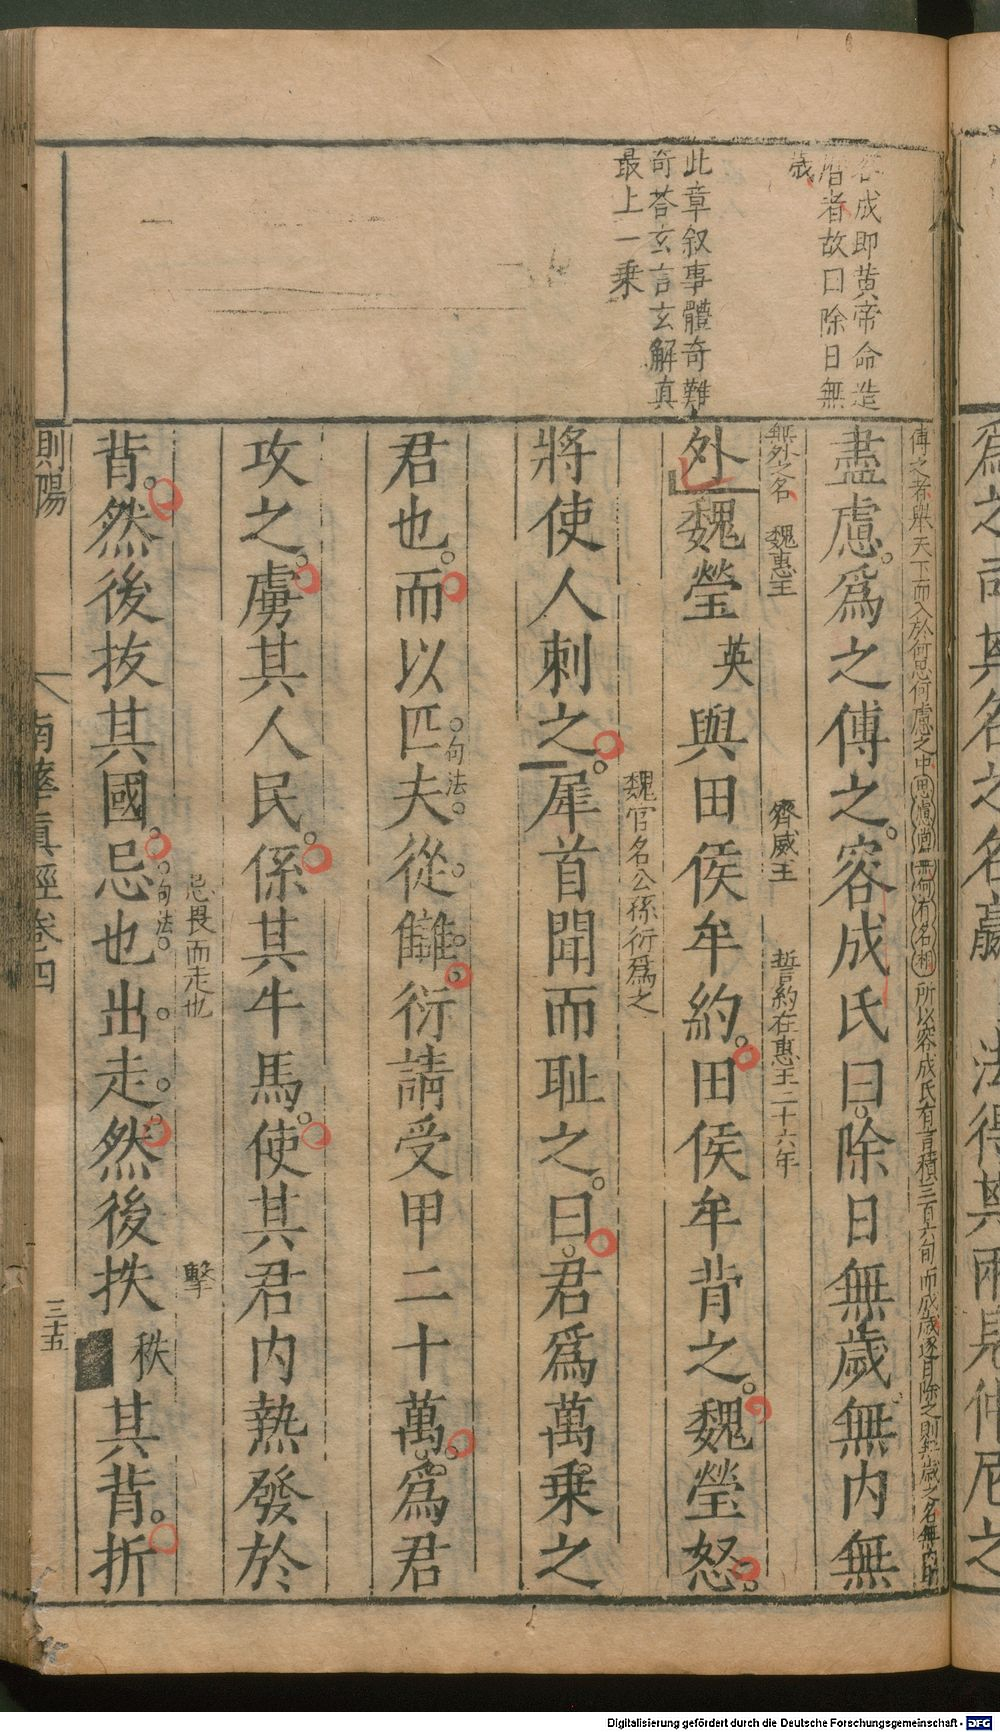 容成即黄帝命造
曆者故曰除日無
歳
此章叙事體奇難
奇荅玄言玄解真
最上一乗
傅之者與天下而入於何思何慮之中
所以容成氏有言積三百六旬而成歳逐日除之則無歳之名無内則
盡慮爲之傅之容成氏曰除日無歳無内無
無外之名 魏惠王 齊威王 誓約在惠王二十六年
外魏瑩英與田侯牟約田侯牟背之魏瑩怒
魏官名公孫衍爲之
將使人刺之犀首聞而耻之曰君爲萬乗之
句法
君也而以匹夫從讎衍請受甲二十萬爲君
攻之虜其人民係其牛馬使其君内熱發於
忌畏而走也 擊
句法
背然後抜其國忌也出走然後抶秩其背折
則陽 南華真經卷四 三十五
Digitalisierung gefördert durch die Deutsche Forschungsgemeinschaft - DFG